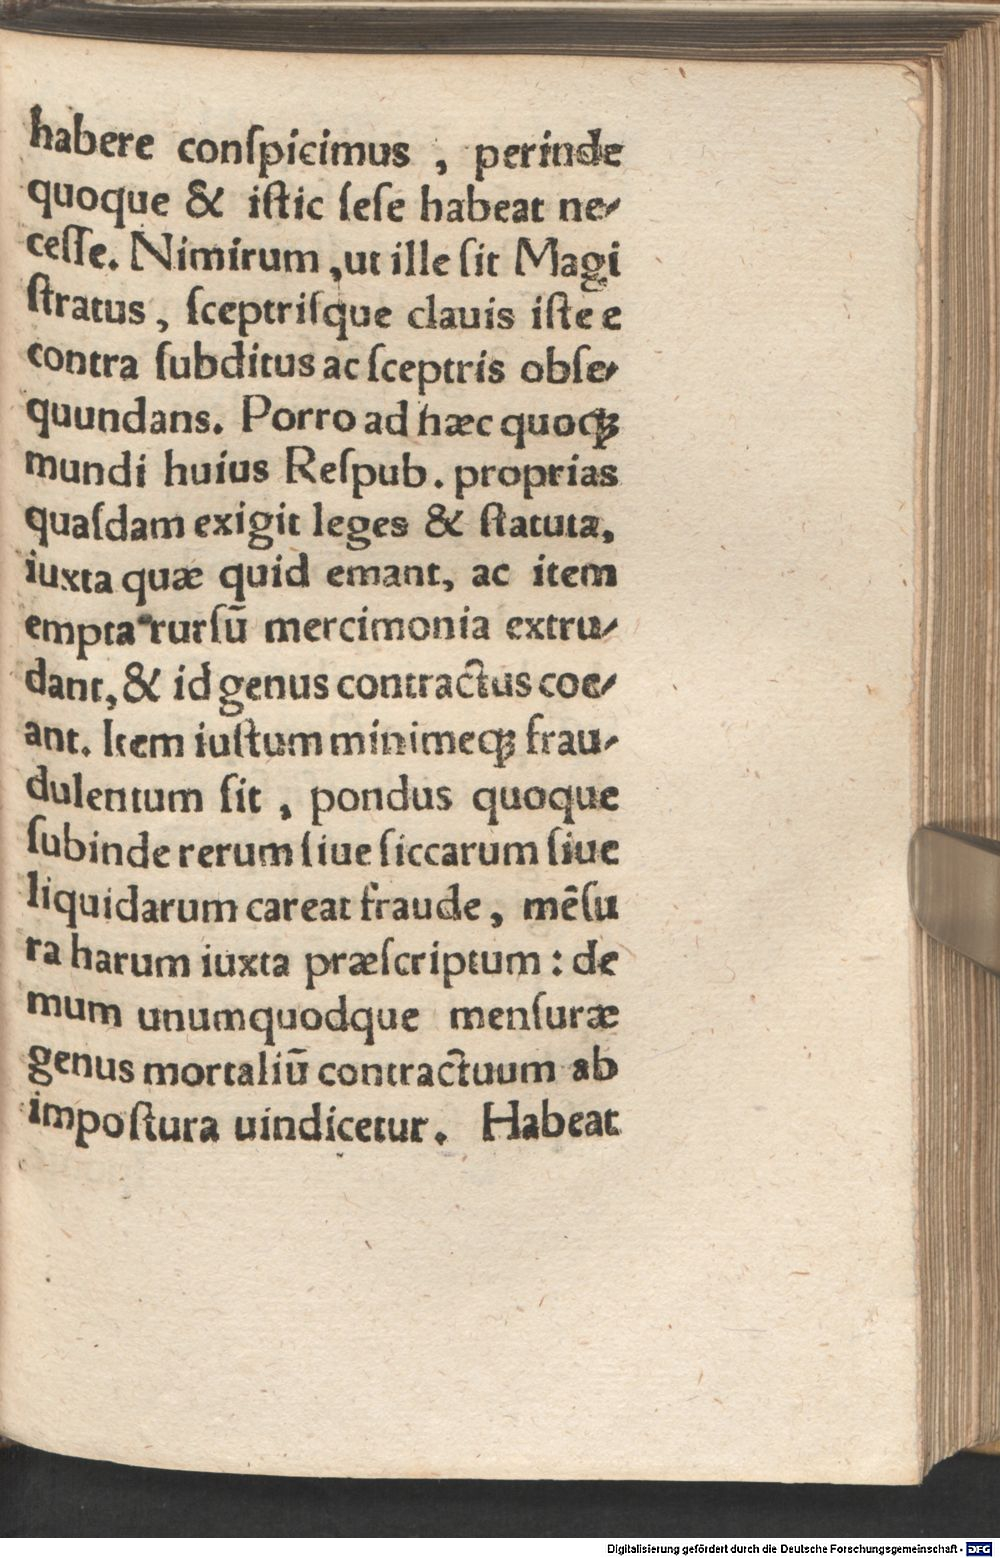 habere conſpicimus , perinde
quoque & iſtic ſeſe habeat ne⸗
ceſſe. Nimirum ,ut ille ſit Magi
ſtratus , ſceptriſque clauis iſte e
contra ſubditus ac ſceptris obſe⸗
quundans. Porro ad hæc quoqꝫ
mundi huius Reſpub. proprias
quaſdam exigit leges & ſtatuta,
iuxta quæ quid emant, ac item
empta rurſū mercimonia extru⸗
dant, & id genus contractus coe⸗
ant. Item iuſtum minimeqꝫ frau⸗
dulentum ſit , pondus quoque
ſubinde rerum ſiue ſiccarum ſiue
liquidarum careat fraude, mēſu
ra harum iuxta præſcriptum : de
mum unumquodque menſuræ
genus mortaliū contractuum ab
impoſtura uindicetur. Habeat
Digitalisierung gefördert durch die Deutsche Forschungsgemeinschaft - DFG